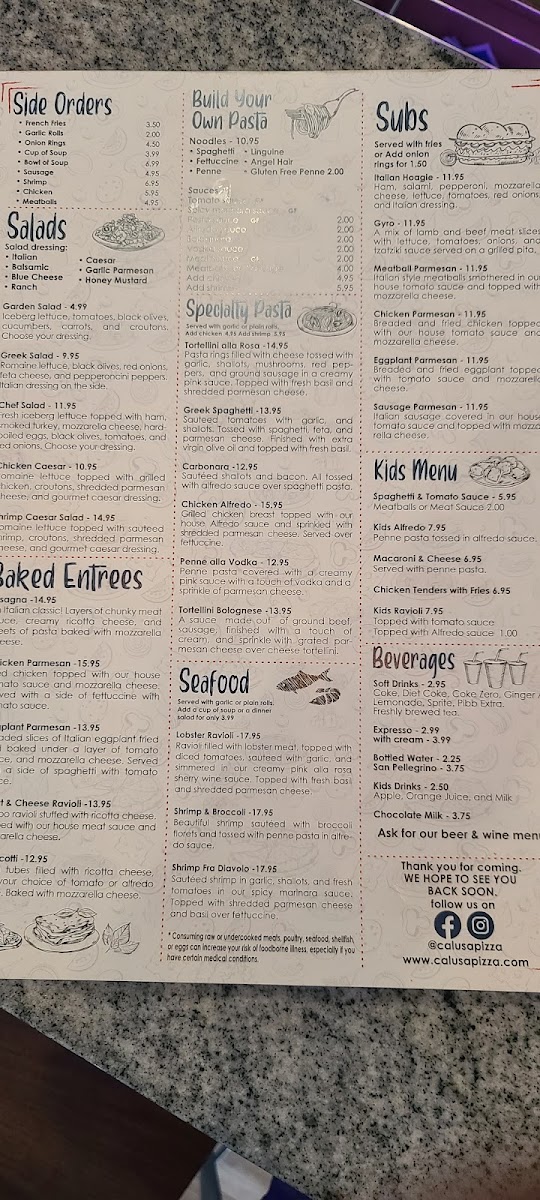 Side Orders
• French Fries 3.50
• Garlic Rolls 2.00
• Onion Rings 4.50
• Cup of Soup 3.99
• Bowl of Soup 4.99
• Sausage 4.95
• Shrimp 6.95
• Chicken 5.95
• Meatballs 4.95
Salads
Salad dressing:
• Italian
• Balsamic
• Blue Cheese
• Ranch
• Caesar
• Garlic Parmesan
• Honey Mustard
Garden Salad - 4.99
Iceberg lettuce, tomatoes, black olives,
cucumbers, carrots, and croutons.
Choose your dressing.
Greek Salad - 9.95
Romaine lettuce, black olives, red onions,
feta cheese, and pepperoncini peppers.
Italian dressing on the side.
Chef Salad - 11.95
fresh iceberg lettuce topped with ham,
smoked turkey, mozzarella cheese, hard-
boiled eggs, black olives, tomatoes, and
red onions. Choose your dressing.
Chicken Caesar - 10.95
omaine lettuce topped with grilled
hicken, croutons, shredded parmesan
heese, and gourmet caesar dressing.
hrimp Caesar Salad - 14.95
omaine lettuce topped with sauteed
hrimp, croutons, shredded parmesan
heese, and gourmet caesar dressing.
Baked Entrees
sagna -14.95
Italian classic! Layers of chunky meat
uce, creamy ricotta cheese, and
eets of pasta baked with mozzarella
eese.
icken Parmesan -15.95
ed chicken topped with our house
mato sauce and mozzarella cheese.
ved with a side of fettuccine with
mato sauce.
gplant Parmesan -13.95
aded slices of Italian eggplant fried
baked under a layer of tomato
ce, and mozzarella cheese. Served
a side of spaghetti with tomato
ce.
t & Cheese Ravioli -13.95
bo ravioli stuffed with ricotta cheese,
ed with our house meat sauce and
arella cheese.
cotti -12.95
tubes filled with ricotta cheese,
your choice of tomato or alfredo
. Baked with mozzarella cheese.
Build Your
Own Pasta
Noodles - 10.95
• Spaghetti • Linguine
• Fettuccine • Angel Hair
• Penne • Gluten Free Penne 2.00
Sauces
Tomato
2.00
2.00
2.00
2.00
2.00
4.00
4.95
Add shrimp 5.95
Specialty Pasta
Served with garlic or plain rolls.
Add chicken 4.95 Add shrimp 5.95
Tortellini alla Rosa -14.95
Pasta rings filled with cheese tossed with
garlic, shallots, mushrooms, red pep-
pers, and ground sausage in a creamy
pink sauce. Topped with fresh basil and
shredded parmesan cheese.
Greek Spaghetti -13.95
Sauteed tomatoes with garlic, and
shallots. Tossed with spaghetti, feta, and
parmesan cheese. Finished with extra
virgin olive oil and topped with fresh basil.
Carbonara -12.95
Sautéed shallots and bacon. All tossed
with alfredo sauce over spaghetti pasta.
Chicken Alfredo - 15.95
Grilled chicken breast topped with our
house Alfredo sauce and sprinkled with
shredded parmesan cheese. Served over
fettuccine.
Penne alla Vodka - 12.95
Penne pasta covered with a creamy
pink sauce with a touch of vodka and a
sprinkle of parmesan cheese.
Tortellini Bolognese -13.95
A sauce made out of ground beef,
sausage, finished with a touch of
cream, and sprinkle with grated par-
mesan cheese over cheese tortellini.
Seafood
Served with garlic or plain rolls.
Add a cup of soup or a dinner
salad for only 3.99
Lobster Ravioli -17.95
Ravioli filled with lobster meat, topped with
diced tomatoes, sauteed with garlic, and
simmered in our creamy pink alla rosa
sherry wine sauce. Topped with fresh basil
and shredded parmesan cheese.
Shrimp & Broccoli -17.95
Beautiful shrimp sauteed with broccoli
florets and tossed with penne pasta in alfre-
do sauce.
Shrimp Fra Diavolo -17.95
Sautéed shrimp in garlic, shallots, and fresh
tomatoes in our spicy marinara sauce.
Topped with shredded parmesan cheese
and basil over fettuccine.
* Consuming raw or undercooked meats, poultry, seafood, shellfish,
or eggs can increase your risk of foodborne illness, especially if you
have certain medical conditions.
Subs
Served with fries
or Add onion
rings for 1.50
Italian Hoagie - 11.95
Ham, salami, pepperoni, mozzarella
cheese, lettuce, tomatoes, red onions,
and Italian dressing.
Gyro - 11.95
A mix of lamb and beef meat slices
with lettuce, tomatoes, onions, and
tzatziki sauce served on a grilled pita.
Meatball Parmesan - 11.95
Italian style meatballs smothered in our
house tomato sauce and topped with
mozzarella cheese.
Chicken Parmesan - 11.95
Breaded and fried chicken topped
with our house tomato sauce and
mozzarella cheese.
Eggplant Parmesan - 11.95
Breaded and fried eggplant topped
with tomato sauce and mozzarella
cheese.
Sausage Parmesan - 11.95
Italian sausage covered in our house
tomato sauce and topped with mozza
rella cheese.
Kids Menu
Spaghetti & Tomato Sauce - 5.95
Meatballs or Meat Sauce 2.00
Kids Alfredo 7.95
Penne pasta tossed in alfredo sauce.
Macaroni & Cheese 6.95
Served with penne pasta.
Chicken Tenders with Fries 6.95
Kids Ravioli 7.95
Topped with tomato sauce
Topped with Alfredo sauce 1.00
Beverages
Soft Drinks - 2.95
Coke, Diet Coke, Coke Zero, Ginger A
Lemonade, Sprite, Pibb Extra,
Freshly brewed tea.
Expresso - 2.99
with cream - 3.99
Bottled Water - 2.25
San Pellegrino - 3.75
Kids Drinks - 2.50
Apple, Orange Juice, and Milk
Chocolate Milk - 3.75
Ask for our beer & wine menu
Thank you for coming.
WE HOPE TO SEE YOU
BACK SOON.
follow us on
@calusapizza
www.calusapizza.com